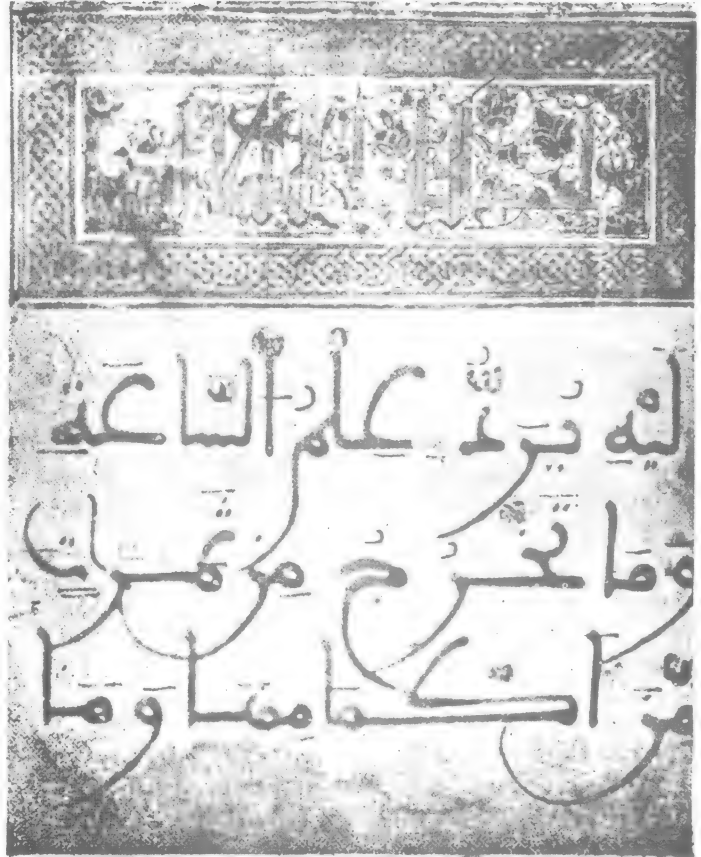 ليه يرد علم الساعة
وما تخرج من ثمرات
من اكمامها وما